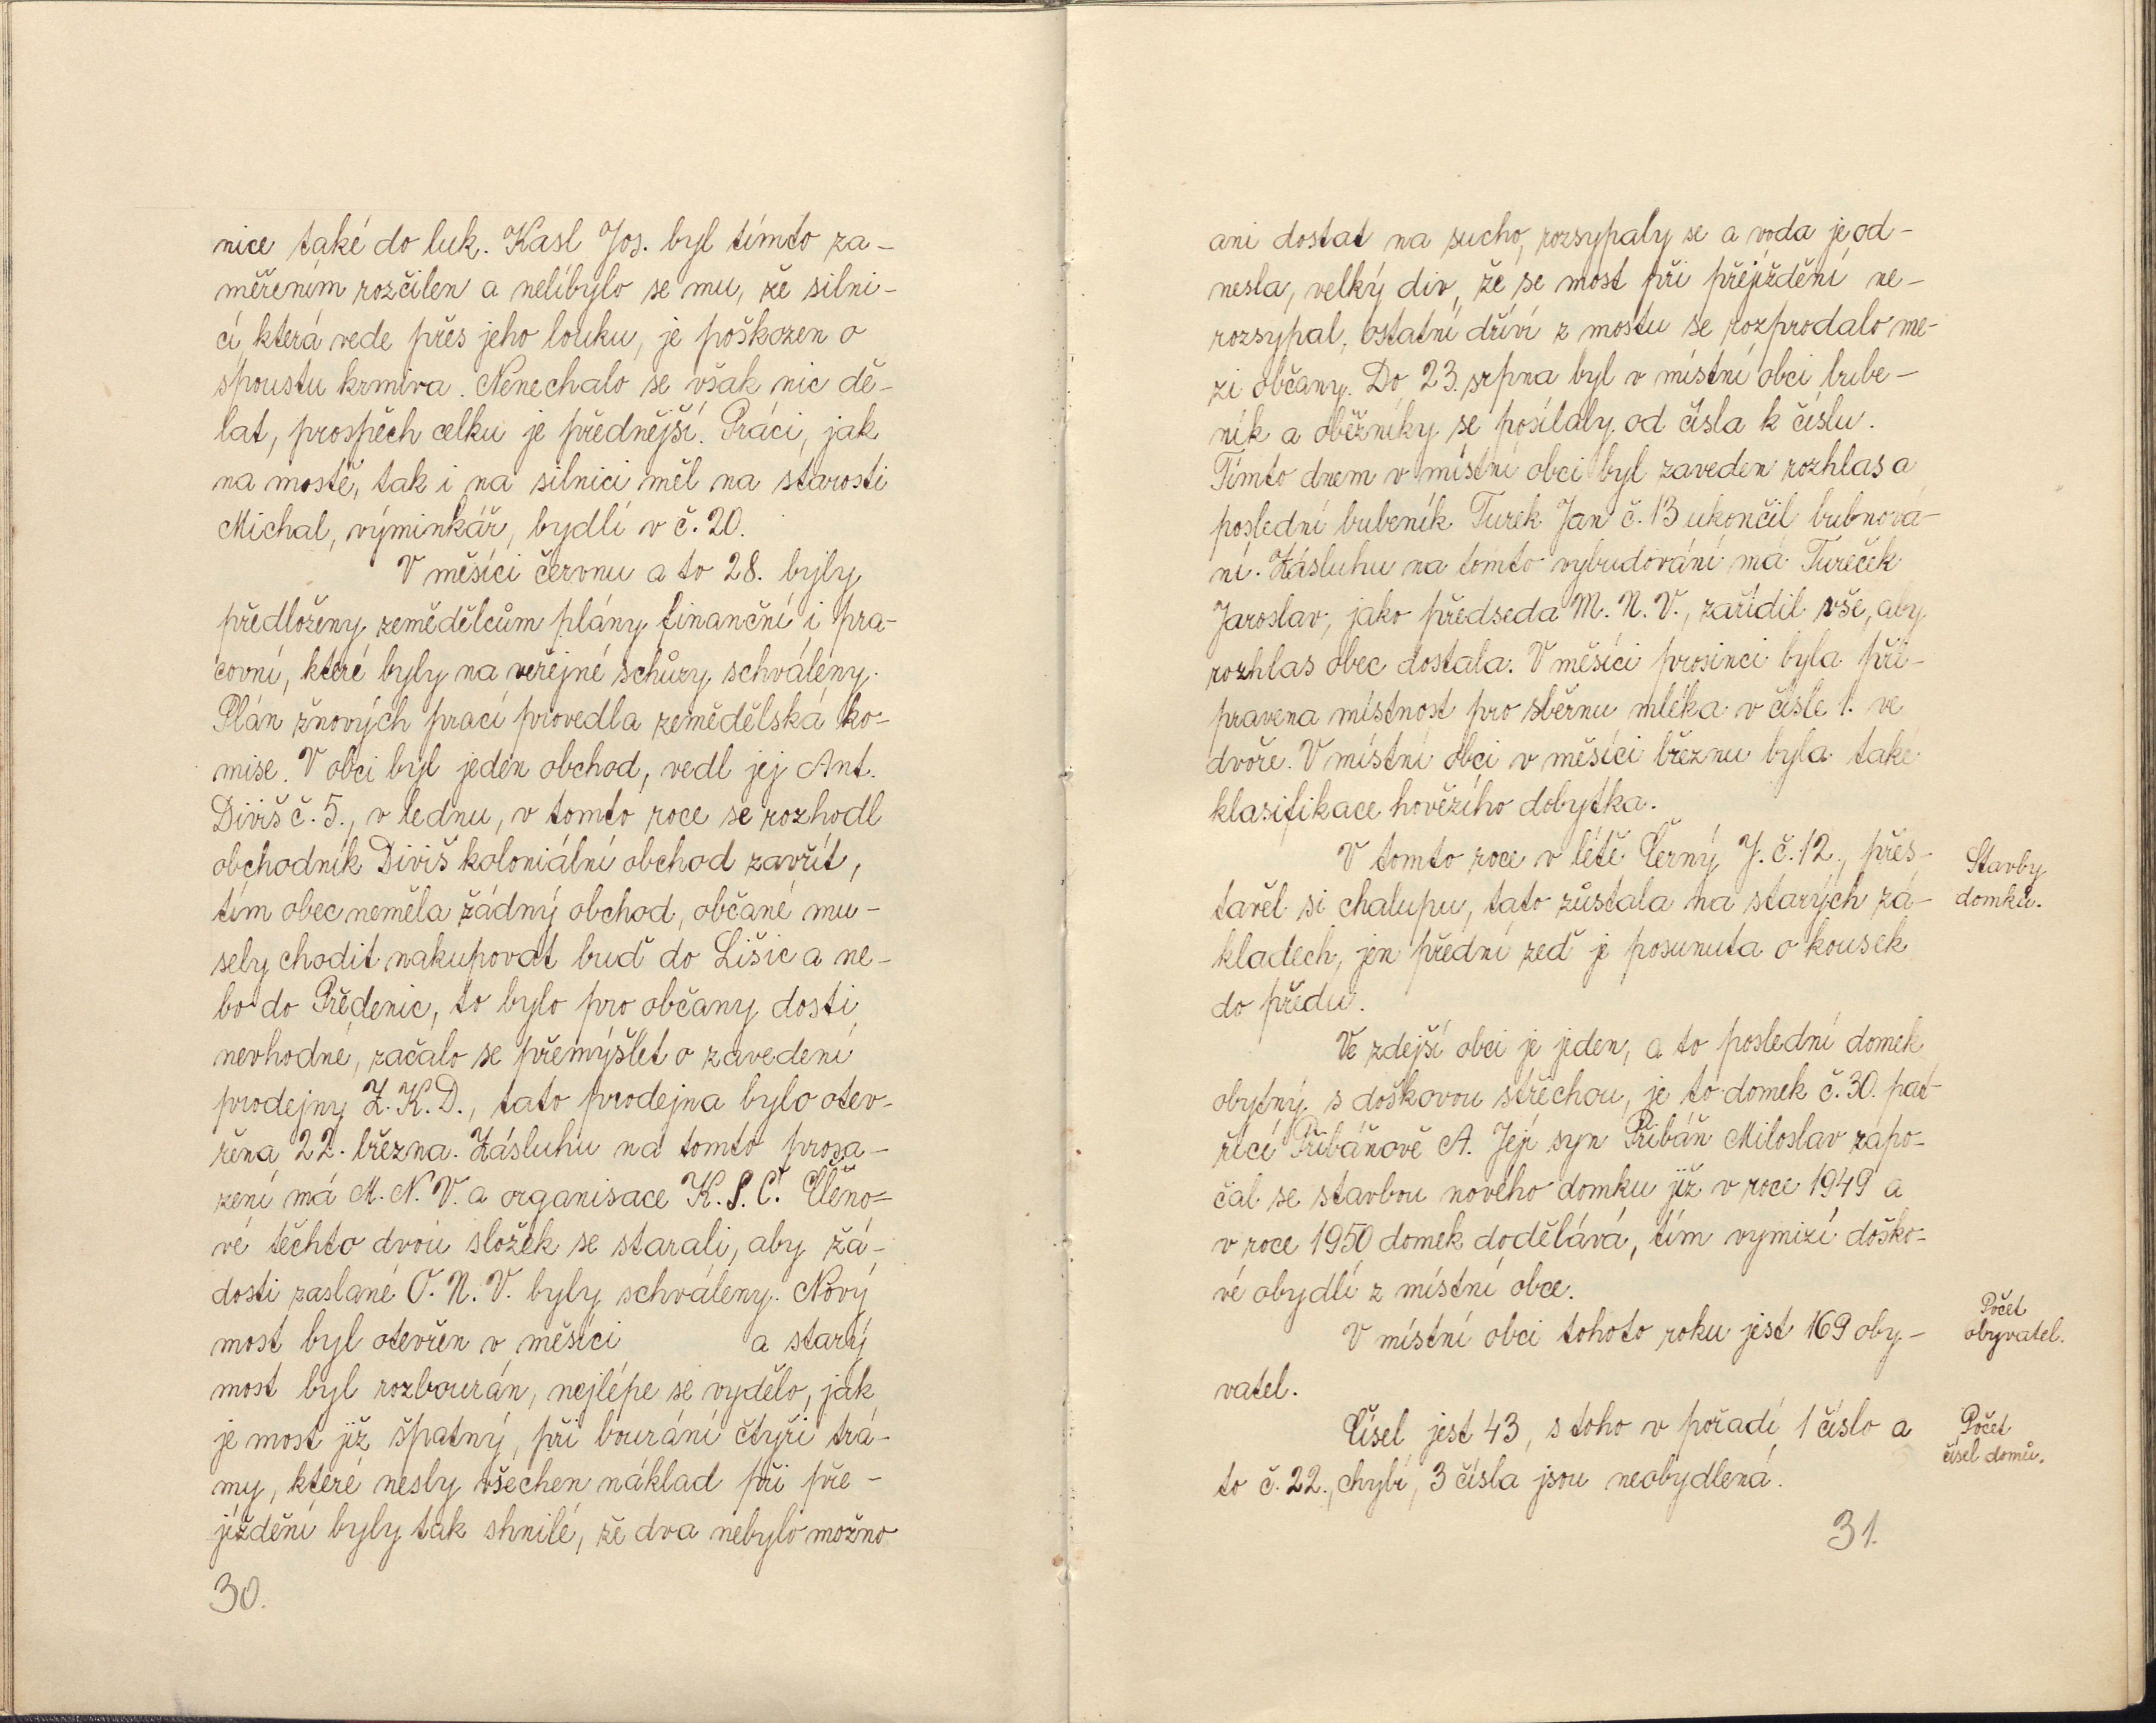 nice také do luk. Kasl Jos. byl tímto za-
měřením rozčilen a nelíbylo se mu, že silni-
cí která vede přes jeho louku, je poškozen o
spoustu krmiva. Nenechalo se však nic dě-
lat, prospěch celku je přednější. Práci, jak
na mostě, tak i na silnici měl na starosti
Michal, výminkář, bydlí v č. 20.
V měsíci červnu a to 28. byly
předloženy zemědělcům plány finanční i pra-
covní, které byly na veřejné schůzy schváleny.
Plán žnových prací provedla zemědělská ko-
mise. V obci byl jeden obchod, vedl jej Ant.
Diviš č. 5., v lednu, v tomto roce se rozhodl
obchodník Diviš koloniální obchod zavřít,
tím obec neměla žádný obchod, občané mu-
sely chodit nakupovat buď do Lišic a ne-
bo do Předenic, to bylo pro občany dosti
nevhodné, začalo se přemýšlet o zavedení
prodejny Z. K. D., tato prodejna bylo otev-
řena 22. března. Zásluhu na tomto prosa-
zení má M. N. V. a organisace K. S. Č. Členo-
vé těchto dvou složek se starali, aby žá-
dosti zaslané O. N. V. byly schváleny. Nový
most byl otevřen v měsíci a starý
most byl rozbourán, nejlépe se vydělo, jak
je most již špatný, při bourání čtyři trá-
my, které nesly všechen náklad při pře-
jíždění byly tak shnilé, že dva nebylo možno
30.
ani dostat na sucho, rozsypaly se a voda je od-
nesla, velký div, že se most při přejíždění ne-
rozsypal, ostatní dříví z mostu se rozprodalo me-
zi občany. Do 23. srpna byl v místní obci bube-
ník a oběžníky se posílaly od čísla k číslu.
Tímto dnem v místní obci byl zaveden rozhlas a
poslední bubeník Turek Jan č. 13 ukončil bubnová-
ní. Zásluhu na tomto vybudování má Tureček
Jaroslav, jako předseda M. N. V., zařídil vše, aby
rozhlas obec dostala. V měsíci prosinci byla při-
pravena místnost pro sběrnu mléka v čísle 1. ve
dvoře. V místní obci v měsíci březnu byla také
klasifikace hovězího dobytka.
V tomto roce v létě Černý J. č. 12., přes-
Stavby
domků.
tavěl si chalupu, tato zůstala na starých zá-
kladech, jen přední zeď je posunuta o kousek
do předu.
Ve zdejší obci je jeden, a to poslední domek
obytný s doškovou střechou, je to domek č. 30. pat-
řící Přibáňově A. Její syn Přibáň Miloslav zapo-
čal se stavbou nového domku již v roce 1949 a
v roce 1950 domek dodělává, tím vymizí doško-
vé obydlí z místní obce.
V místní obci tohoto roku jest 169 oby-
Počet
obyvatel.
vatel.
Čísel jest 43, s toho v pořadí 1 číslo a
Počet
čísel domů.
to č. 22., chybí, 3 čísla jsou neobydlená.
31.